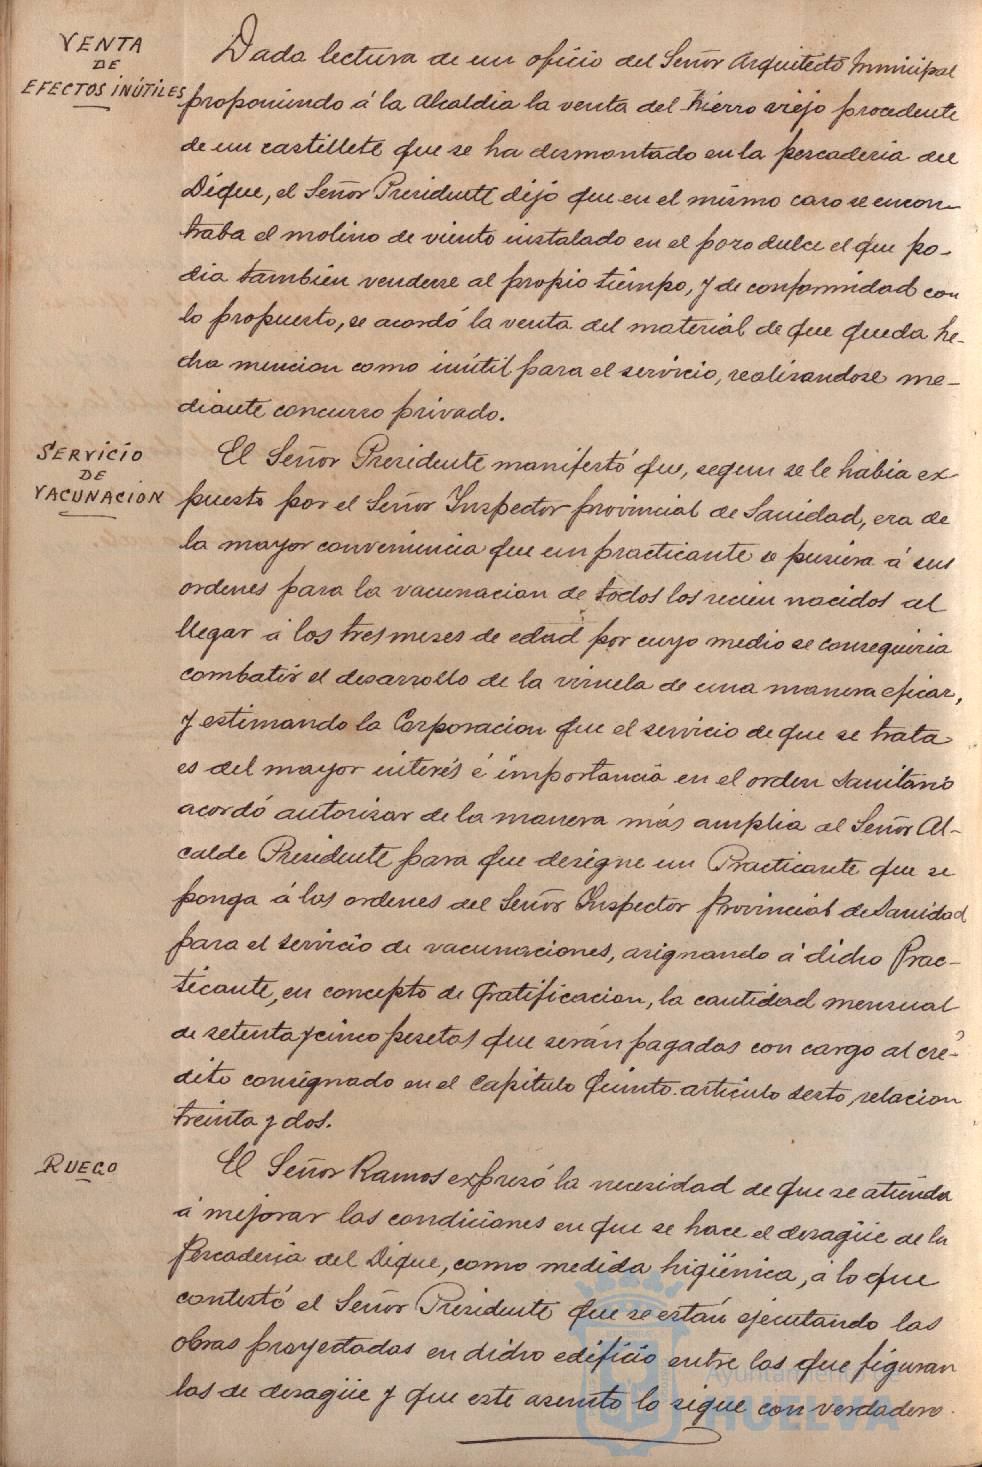 VENTA
DE
EFECTOS INÚTILES
Dada lectura de un oficio del Señor Arquitecto Municipal
proponiendo á la Alcaldia la venta del hierro viejo procedente
de un castillete que se ha desmontado en la pescaderia del
Dique, el Señor Presidente dijo que en el mismo caso se encon-
traba el molino de viento instalado en el pozo dulce el que po-
dia tambien venderse al propio tiempo, y de conformidad con
lo propuesto, se acordó la venta del material de que queda he-
cha mencion como inútil para el servicio, realizandose me-
diante concurso privado.
SERVICIO
DE
VACUNACIÓN
El Señor Presidente manifestó que, segun se le habia ex
puesto por el Señor Inspector provincial de Sanidad, era de
la mayor conveniencia que un practicante se pusiera á sus
ordenes para la vacunacion de todos los recien nacidos al
llegar á los tres meses de edad por cuyo medio se conseguiria
combatir el desarrollo de la viruela de una manera eficaz,
y estimando la Corporacion que el servicio de que se trata
es del mayor interés é importancia en el orden sanitario
acordó autorizar de la manera más amplia al Señor Al-
calde Presidente para que designe un Practicante que se
ponga á las ordenes del Señor Inspector Provincial de Sanidad
para el servicio de vacunaciones, asignando á dicho Prac-
ticante, en concepto de Gratificacion, la cantidad mensual
de setenta y cinco pesetas que serán pagadas con cargo al cré-
dito consignado en el Capitulo Quinto. articulo sesto, relacion
treinta y dos.
RUEGO
El Señor Ramos expresó la necesidad de que se atienda
á mejorar las condiciones en que se hace el desagüe de la
Pescaderia del Dique, como medida higiénica, á lo que
contestó el Señor Presidente que se están ejecutando las
obras proyectadas en dicho edificio entre las que figuran
las de desagüe y que este asunto lo sigue con verdadero
Ayuntamiento de
HUELVA